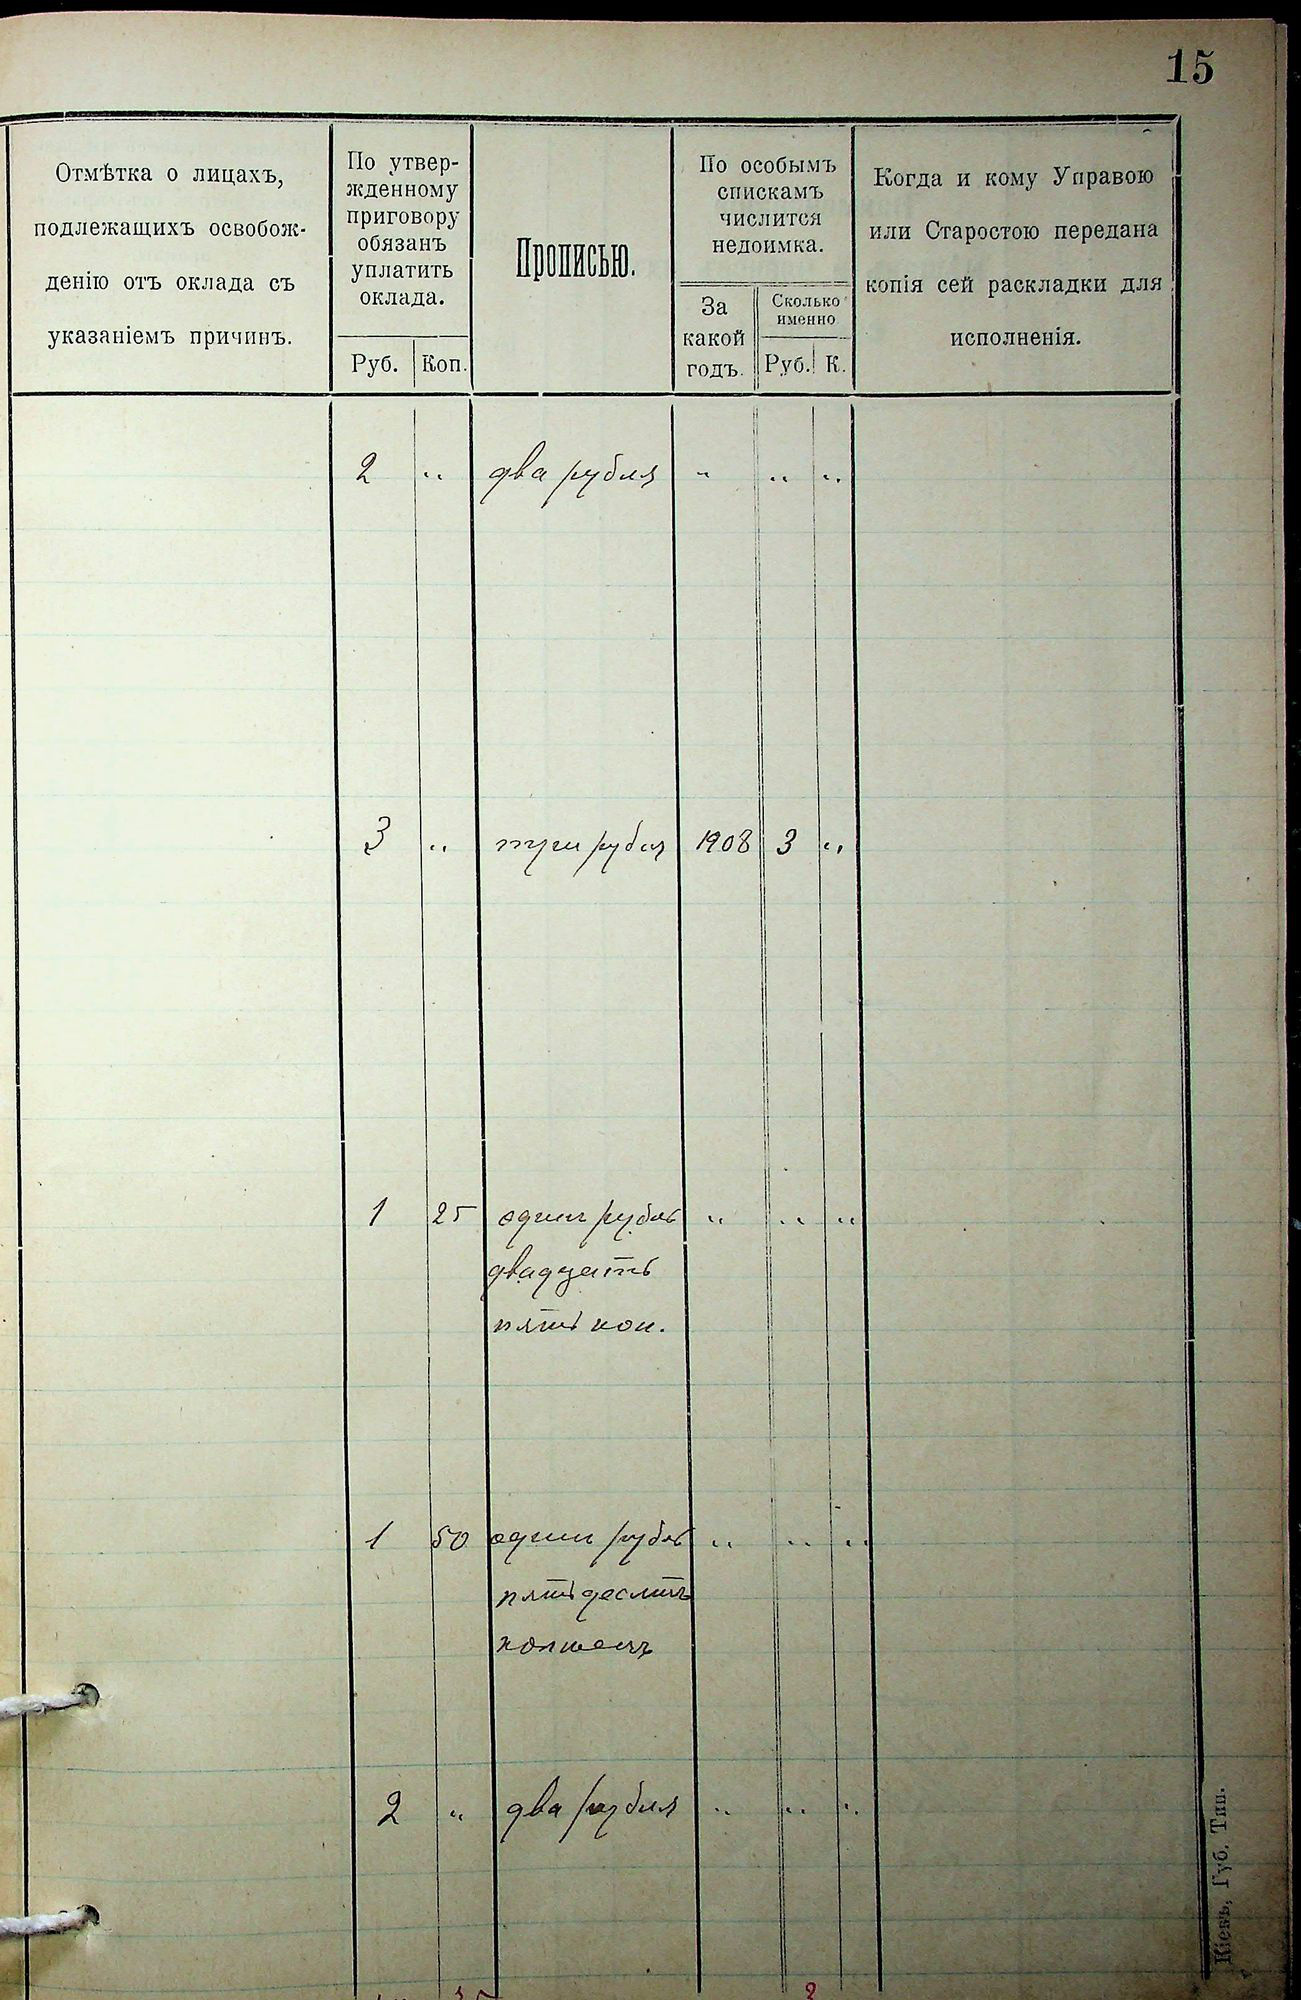 15
Отмѣтка о лицахъ,
подлежащихъ освобож-
денію отъ оклада съ
указаніемъ причинъ.
По утвер-
жденному
приговору
обязанъ
уплатить
оклада.
Руб. Коп.
Прописью.
По особымъ
спискамъ
числится
недоимка.
За
какой
годъ.
Сколько
именно
Руб. К.
Когда и кому Управою
или Старостою передана
копія сей раскладки для
исполненія.
2 " два рубля " " "
3 " три рубля 1908 3 "
1 25 один рубль " " "
двадцать
пять коп.
1 50 один рубль " " "
пятьдесятъ
копѣекъ
2 " два рубля " " "
Кіевъ, Губ. Тип.